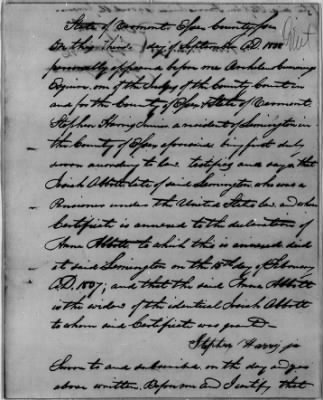 State of Vermont, Essex County ss
On this third day of September A.D. 1838
personally appeared before me Cummings
Esquire, one of the Judges of the County Court in
and for the County of Essex & State of Vermont
Stephen Harris Junior a resident of Lemington in
the County of Essex aforesaid being first duly
sworn according to law testifies and says that
Josiah Abbott late of said Lemington, who was a
Pensioner under the United States law and whose
Certificate is annexed to the declaration of
Anna Abbott to which this is annexed died
at said Lemington on the 15th day of February
A.D. 1837; and that the said Anna Abbott
is the widow of the identical Josiah Abbott
to whom said Certificate was granted—
Stephen Harris jr
Sworn to and subscribed on the day and year
above written. Before me and I certify that